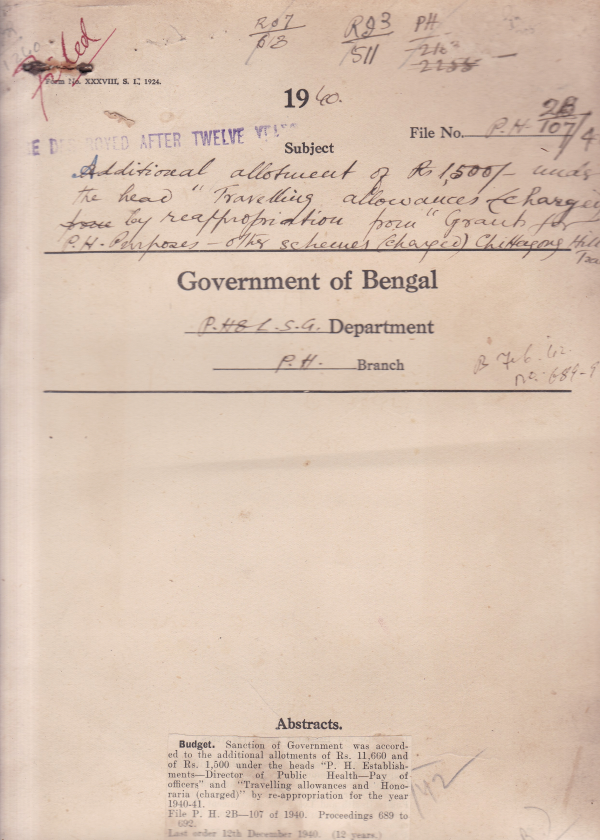 Filed
Form No. XXXVIII, S. L., 1924.
1940.
File No. P.H. 2B 107/4
DESTROYED AFTER TWELVE YEARS
Subject
Additional allotment of Rs 1,500/- under
the head "Travelling allowances (charged
by reappropriation from "Grants for
P.H. Purposes - other schemes (charged) Chittagong Hill
Government of Bengal
P.H & L.S.G. Department
P.H. Branch
Abstracts.
Budget. Sanction of Government was accord-
ed to the additional allotments of Rs. 11,660 and
of Rs. 1,500 under the heads "P. H. Establish-
ments—Director of Public Health—Pay of
officers" and "Travelling allowances and Hono-
raria (charged)" by re-appropriation for the year
1940-41.
File P. H. 2B—107 of 1940. Proceedings 689 to
692.
Last order 12th December 1940. (12 years.)